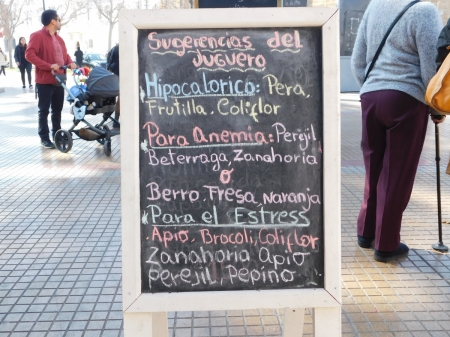 Sugerencias del
Juguero
Hipocalorico: Pera,
Frutilla, Coliflor
Para Anemia: Perejil
Beterraga, Zanahoria
o
Berro, Fresa, Naranja
Para el Estress
Apio, Brocoli, Coliflor
Zanahoria Apio
perejil, Pepino